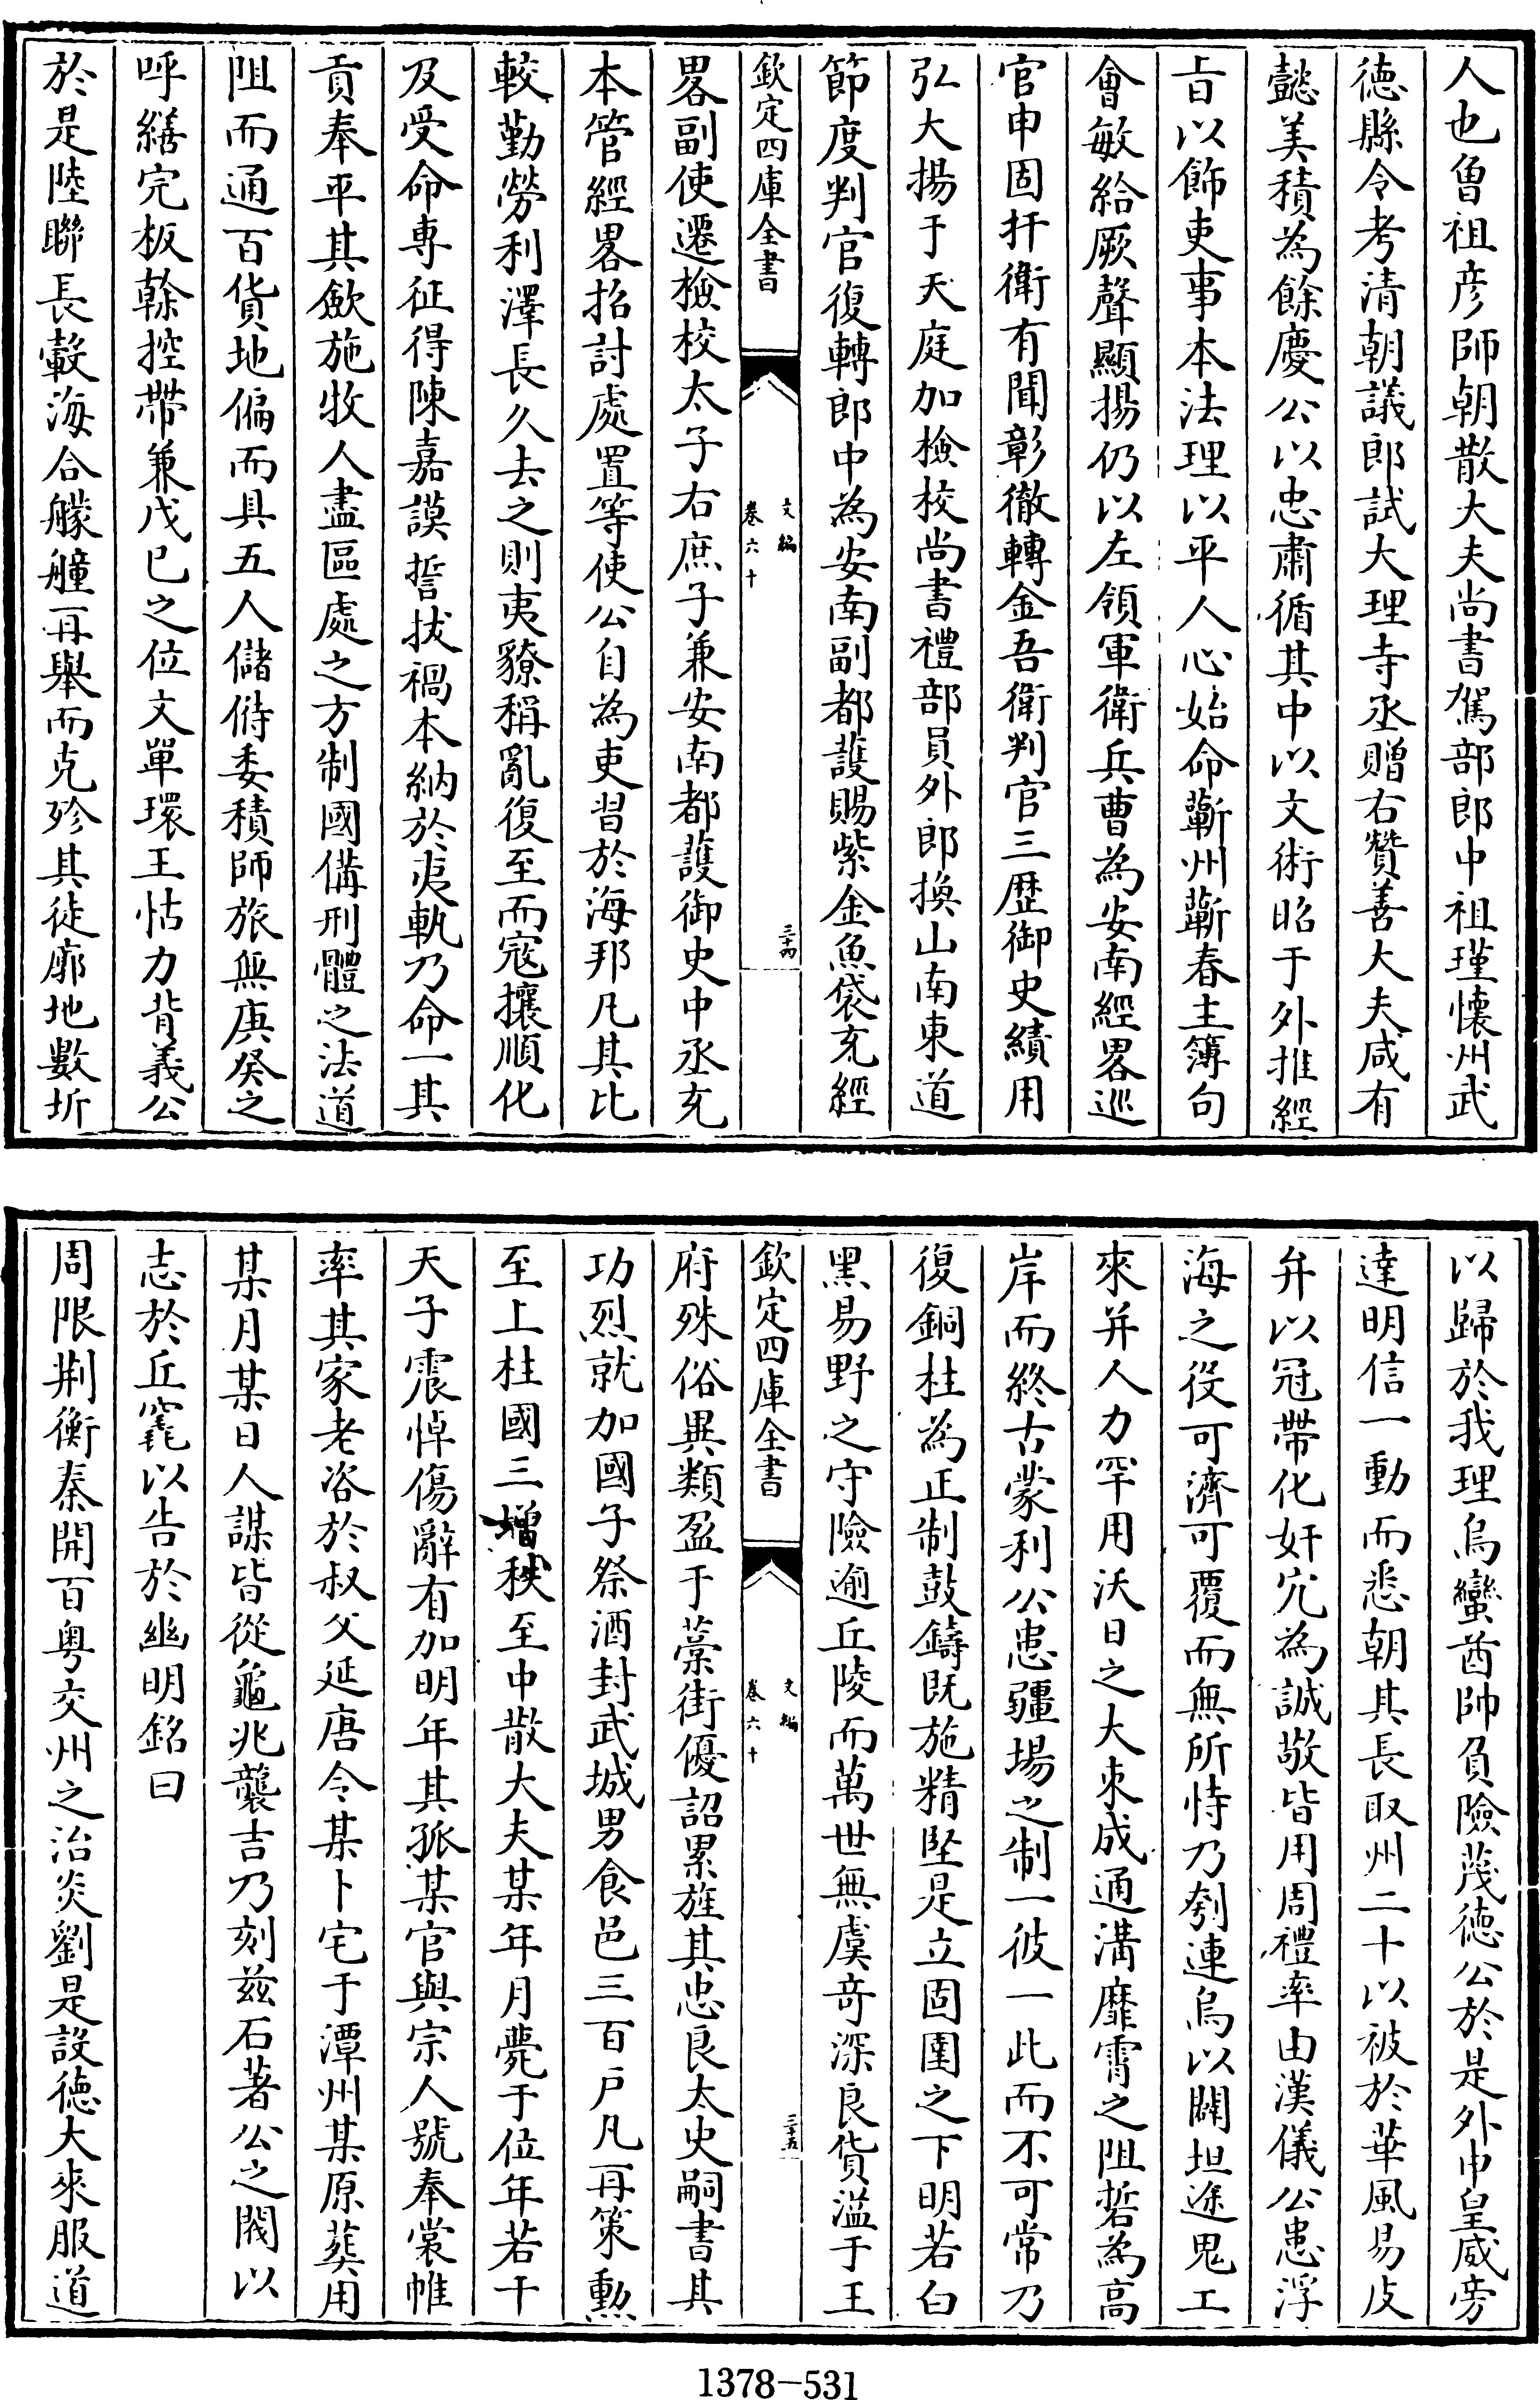 人也曾祖彦師朝散大夫尚書駕部郎中祖瑾懷州武
德縣令考清朝議郎試大理寺丞贈右贊善大夫咸有
懿美積為餘慶公以忠肅循其中以文術昭于外推經
㫖以飾吏事本法理以平人心始命蘄州蘄春主簿句
會敏給厥聲顯揚仍以左領軍衛兵曹為安南經畧巡
官申固扞衛有聞彰徹轉金吾衛判官三歴御史績用
弘大揚于天庭加檢校尚書禮部員外郎換山南東道
節度判官復轉郎中為安南副都護賜紫金魚袋充經
欽定四庫全書
文編
卷六十
三十四
畧副使遷檢校太子右庶子兼安南都護御史中丞充
本管經畧招討處置等使公自為吏習於海邦凡其比
較勤勞利澤長久去之則夷獠稱亂復至而寇攘順化
及受命專征得陳嘉謨誓拔禍本納於夷軌乃命一其
貢奉平其歛施牧人盡區處之方制國備刑體之法道
阻而通百貨地偏而具五人儲偫委積師旅無庚癸之
呼繕完板榦控帶兼戊巳之位文單環王怙力背義公
於是陸聯長轂海合艨艟再舉而克殄其徒廓地數圻
以歸於我理烏蠻酋帥負險蔑德公於是外申皇威旁
達明信一動而悉朝其長取州二十以被於華風易皮
弁以冠帶化奸宄為誠敬皆用周禮率由漢儀公患浮
海之役可濟可覆而無所恃乃刳連烏以闢坦途鬼工
來并人力罕用沃日之大束成通溝靡霄之阻硩為高
岸而終古蒙利公患疆場之制一彼一此而不可常乃
復銅柱為正制鼓鑄既施精堅是立固圉之下明若白
黑易野之守險逾丘陵而萬世無虞竒深良貨溢于王
欽定四庫全書
文編
卷六十
三十五
府殊俗異類盈于藁街優詔累旌其忠良太史嗣書其
功烈就加國子祭酒封武城男食邑三百戸凡再策勲
至上柱國三增秩至中散大夫某年月薨于位年若干
天子震悼傷辭有加明年其孤某官與宗人號奉裳帷
率其家老咨於叔父延唐令某卜宅于潭州某原葬用
某月某日人謀皆從龜兆襲吉乃刻兹石著公之閥以
志於丘竁以告於幽明銘曰
周限荆衡秦開百粤交州之治炎劉是設德大來服道
1378-531